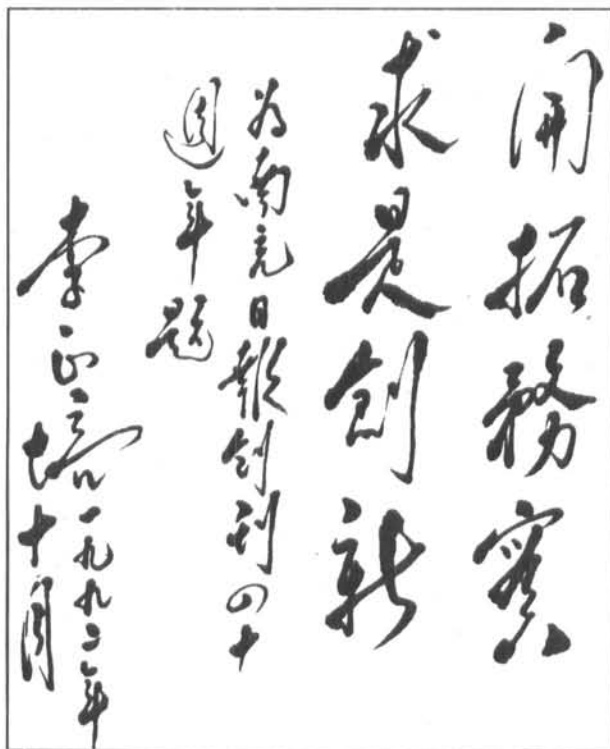 開拓務實
求是創新
为南充日報创刊四十
週年題
李正培
一九九二年
十月